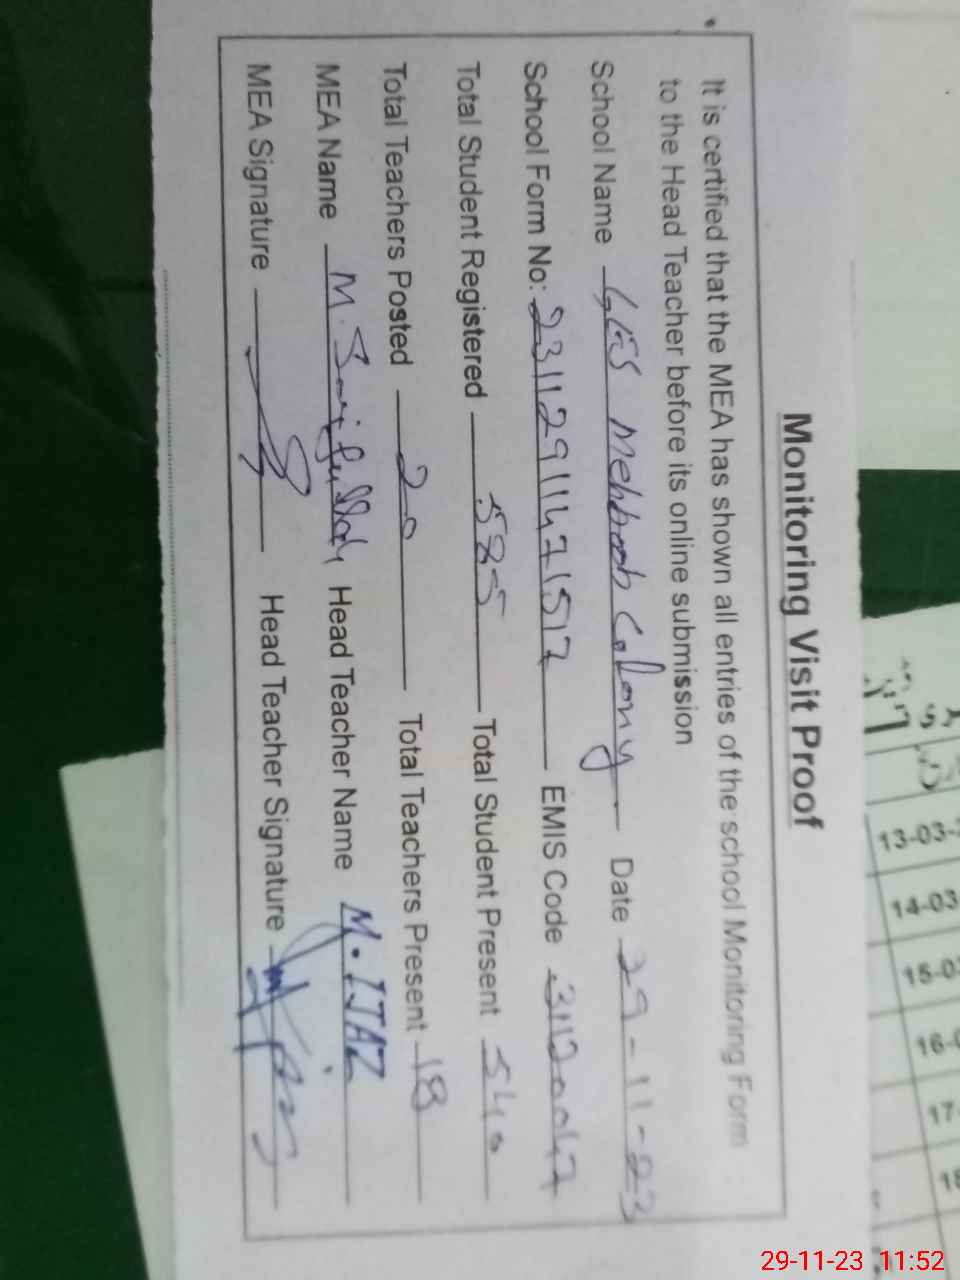 Monitoring Visit Proof
It is certified that the MEA has shown all entries of the school Monitoring Form
to the Head Teacher before its online submission
School Name GES Mehboob Colony Date 29-11-23
School Form No: 23112911471517 EMIS Code 31120047
Total Student Registered 585 Total Student Present 540
Total Teachers Posted 20 Total Teachers Present 18
MEA Name M. Head Teacher Name M. IJAZ
MEA Signature Head Teacher Signature
13-03-
14-03
15-0
16-0
17-
18
29-11-23 11:52